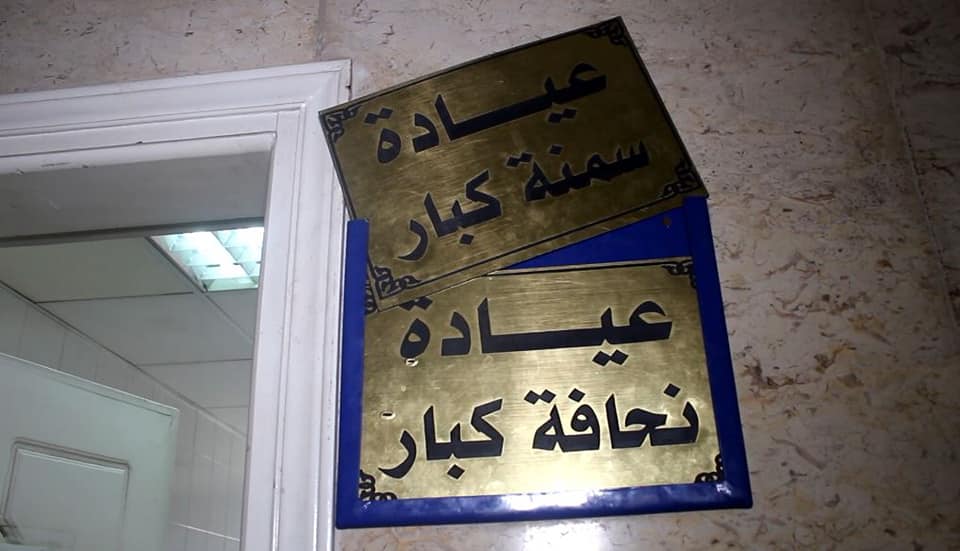 عيادة
سمنة كبار
عيادة
نحافة كبار